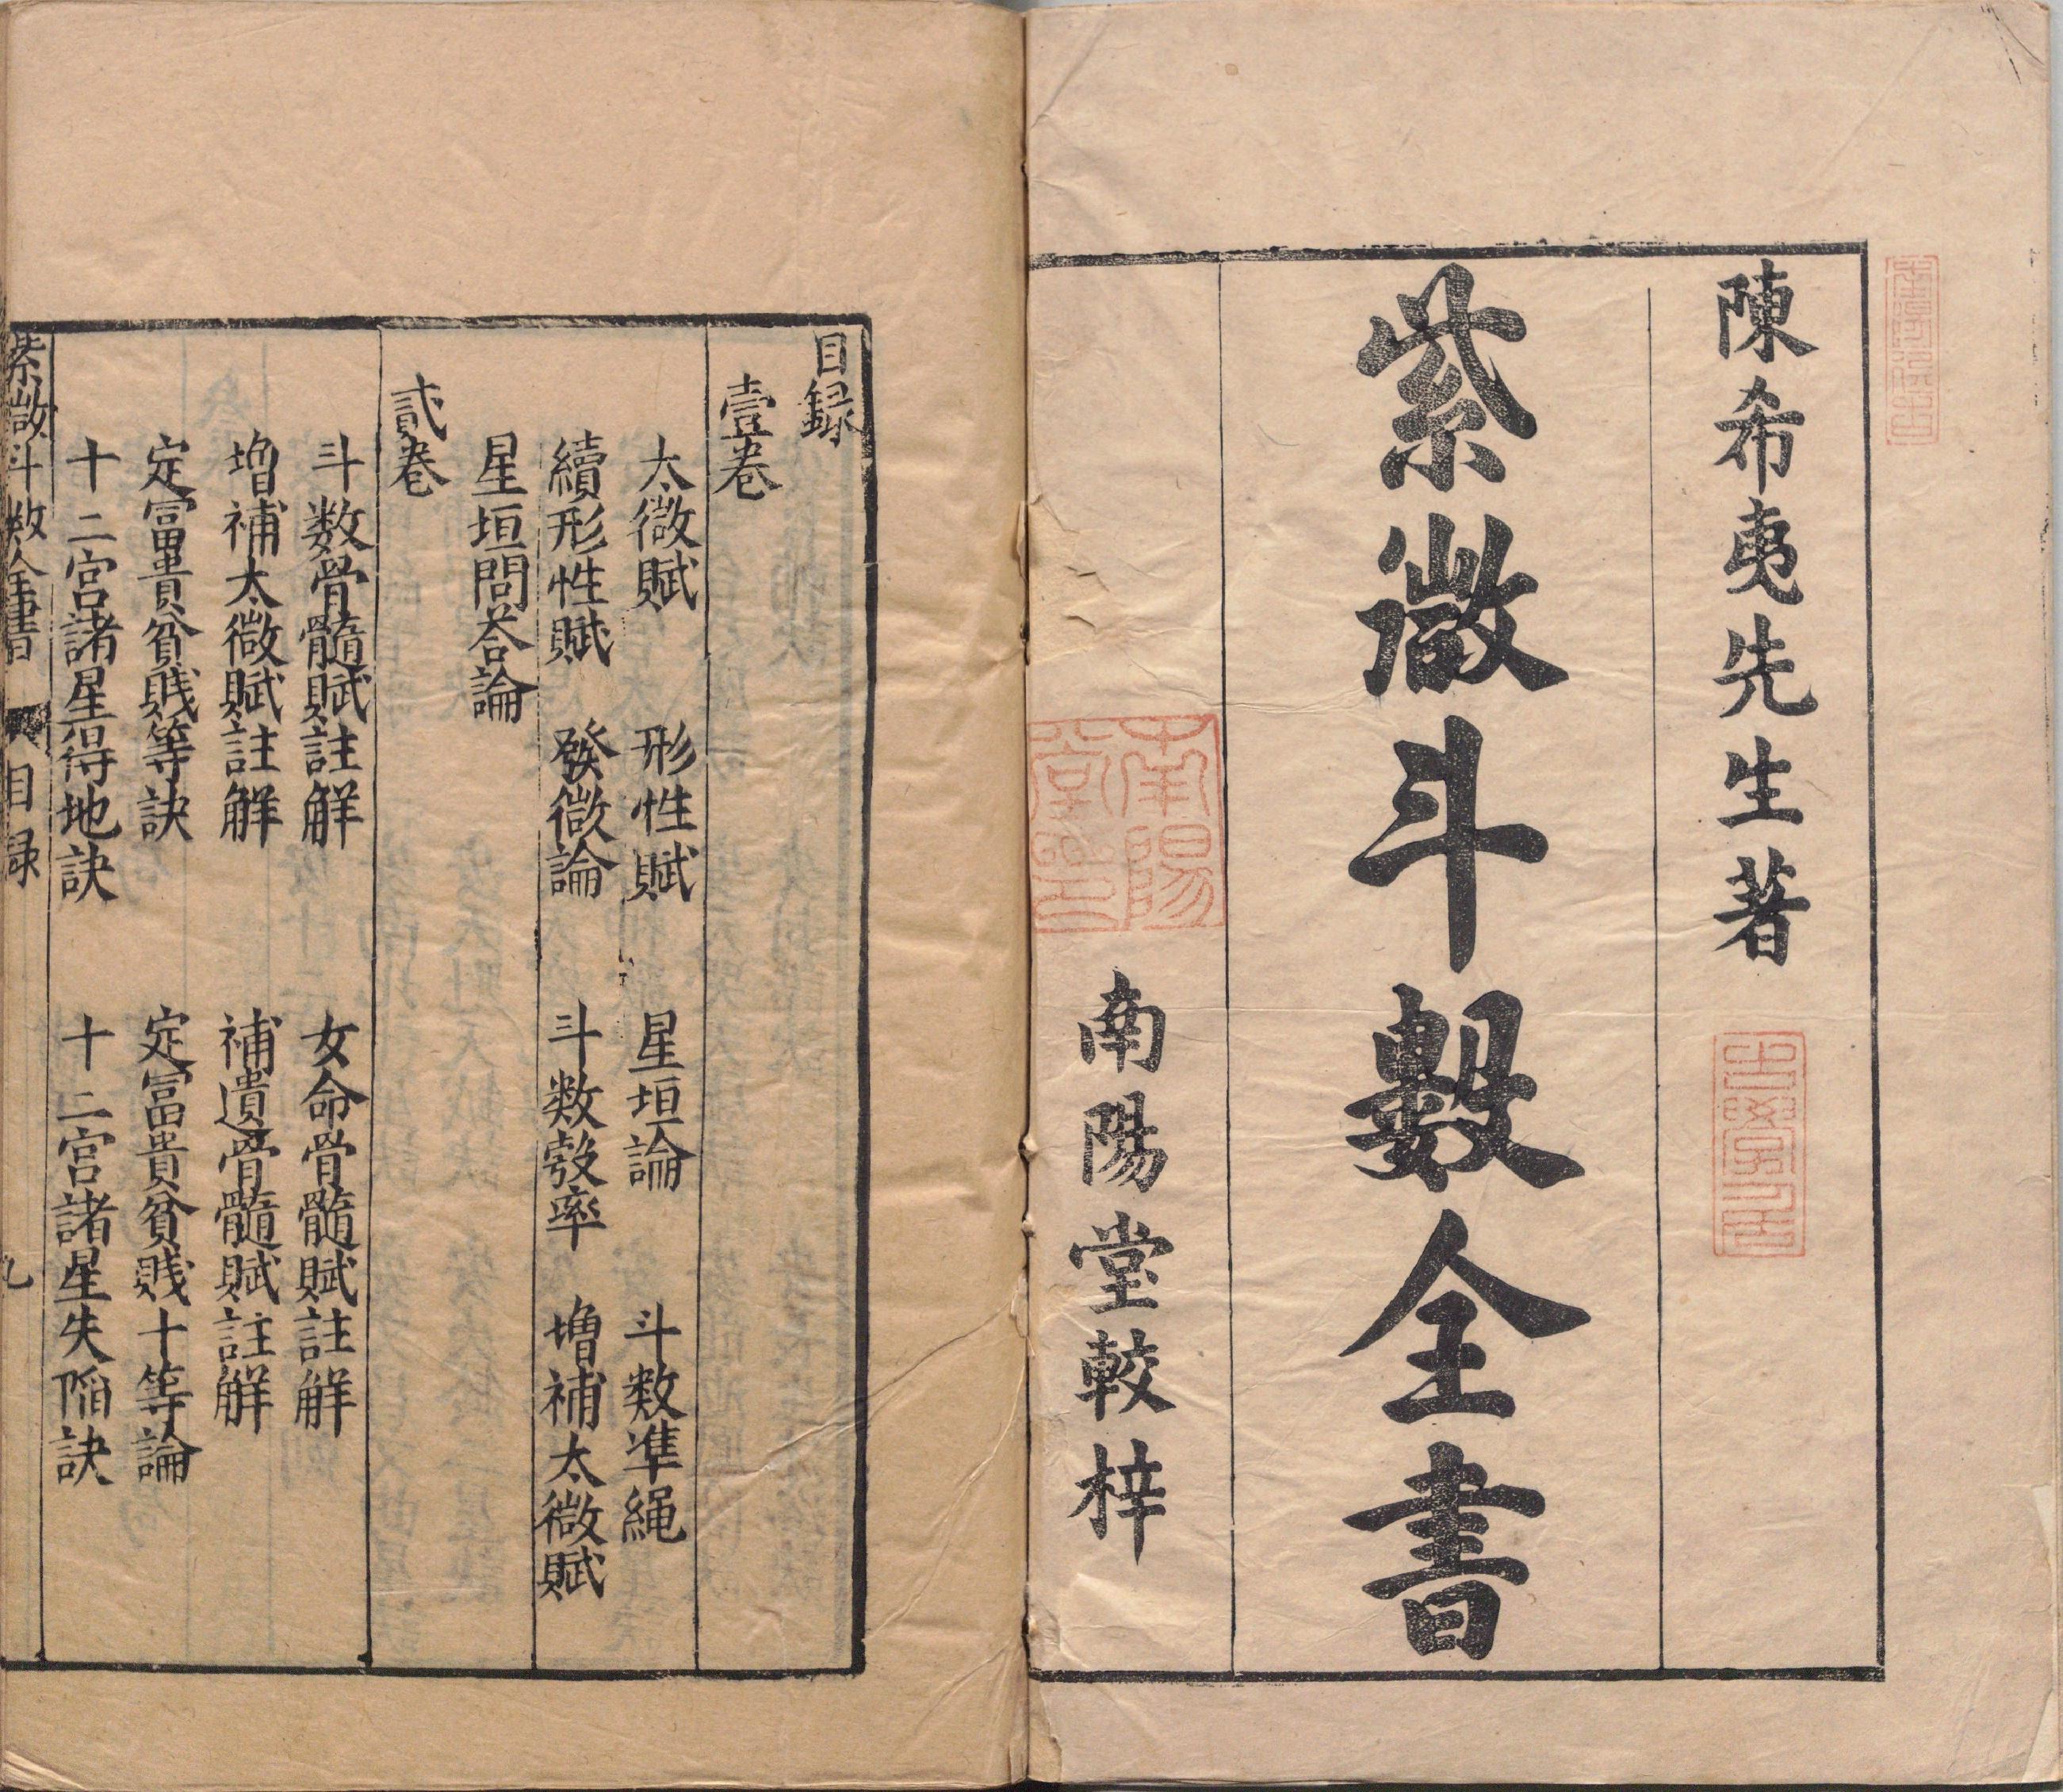 陳希夷先生著
紫微斗數全書
南陽堂較梓
南陽堂
目録
壹卷
太微賦 形性賦 星垣論 斗数準繩
續形性賦 發微論 斗数彀率 增補太微賦
星垣問荅論
貳卷
斗数骨髓賦註解 女命骨髓賦註解
增補太微賦註解 補遺骨髓賦註解
定冨貴貧賤等訣 定冨貴貧賤十等論
十二宮諸星得地訣 十二宮諸星失陷訣
紫微斗数全書 目録